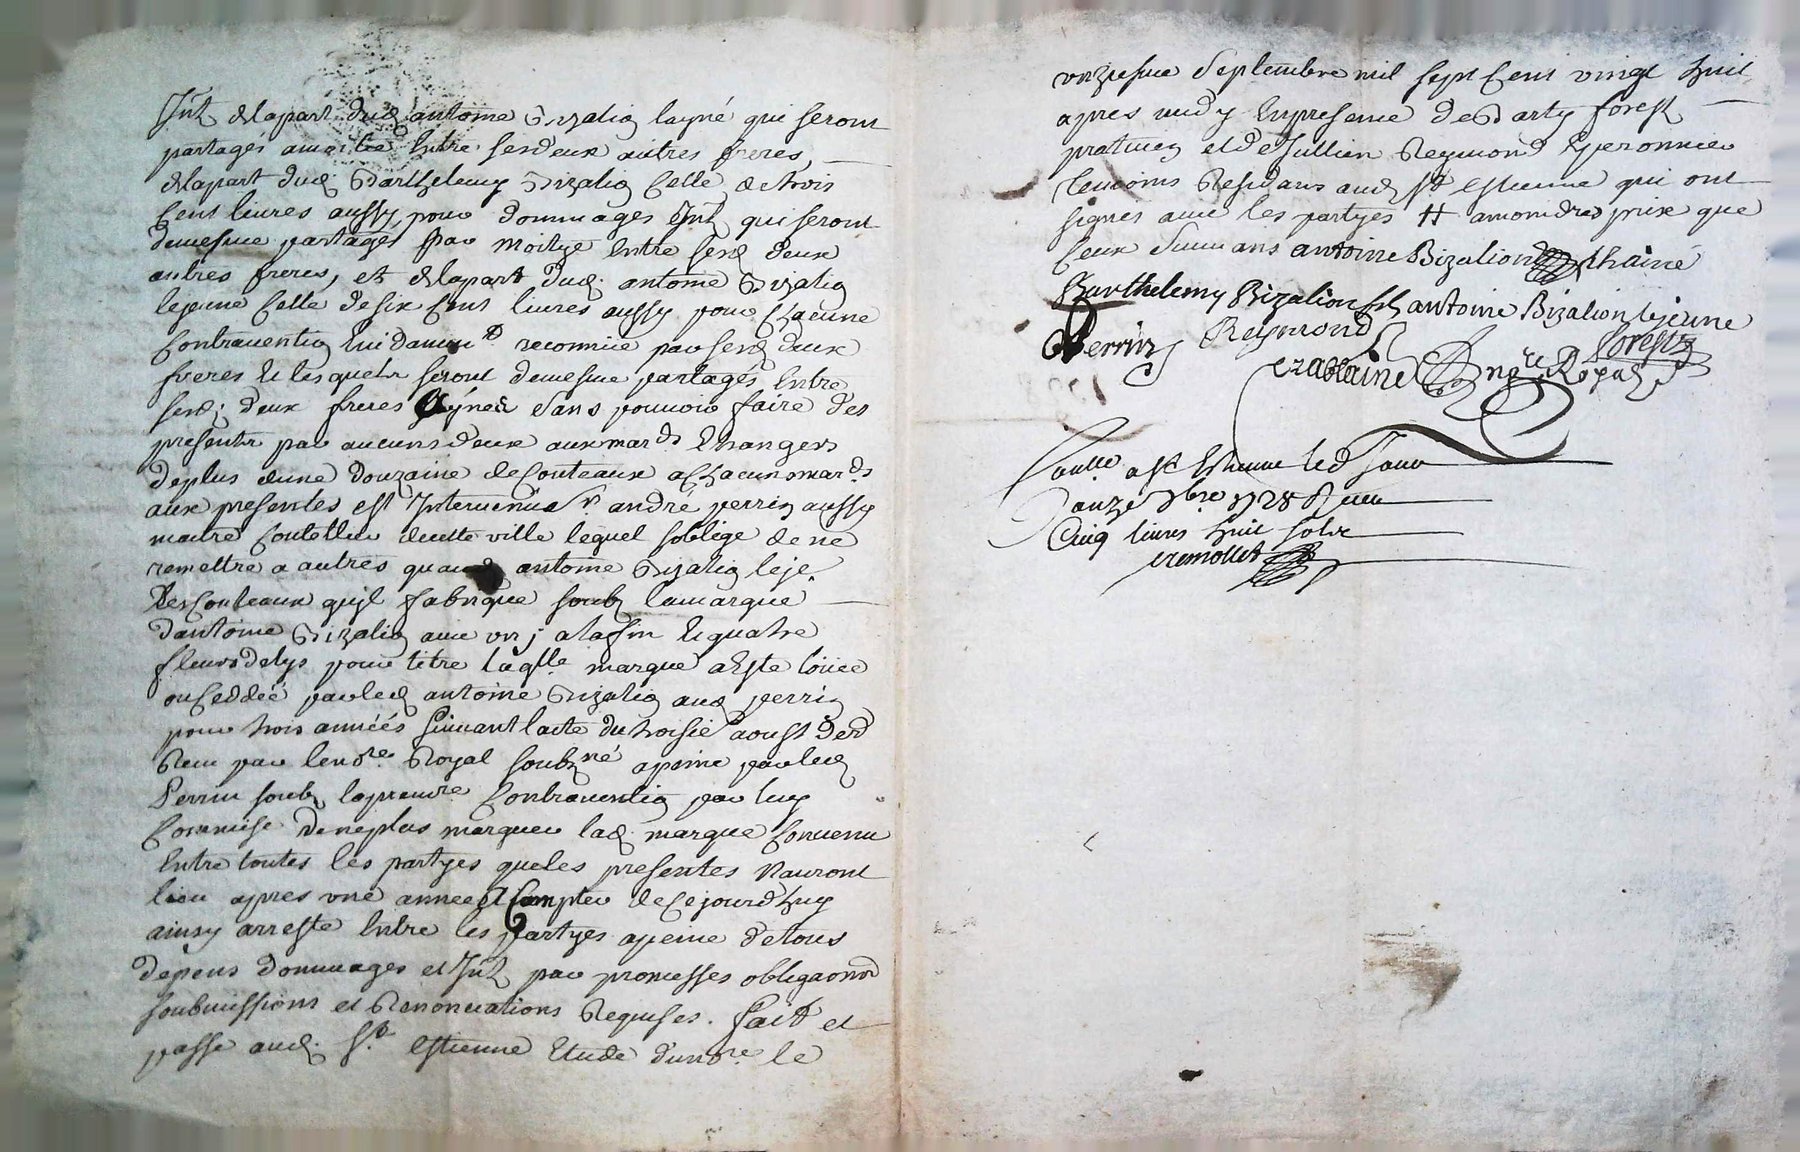 Int. de la part dud. antoine Bizalion layné qui seront
partagés entre sesd. deux autres freres,
de la part dud. Barthelemy Bizalion celle de trois
cent livres aussy pour dommages Int. qui seront
demesme partagés par moitye entre sesd. deux
autres freres, et de la part dud. antoine Bizalion
lejeune celle de six cent livres aussy pour chacune
contravention reconnue par sesd. deux
freres et lesquels seront demesme partagés entre
sesd. deux freres aynés sans pouvoir faire des
presents par aucuns deux aux mards. Etrangers
de plus dune douzaine de couteaux a chacuns mards.
aux presentes est Intervenue Sr. andré perrin aussy
maitre coutellier de cette ville lequel soblige de ne
remettre a autres quaud. antoine Bizalion leje.
Les couteaux quyl fabrique soubs la marque
dantoine Bizalion avec un j a la fin et quatre
fleurs delys pour titre laqlle. marque a Esté louée
ou ceddée par led. antoine Bizalion aud. perrin
pour trois années suivant lacte du troisie. aoust der.
Receu par le nore. Royal soubsné. a peine par led.
Perrin soubs la premre. contravention par luy
commise de ne plus marquer lad. marque convenu
Entre toutes les partyes que les presentes nauront
lieu apres une année a compter de cejourdhuy
ainsy arresté Entre les partyes a peine de tous
depens dommages et Int. par promesses obligaons.
soubmissions et Renonciations Requises. fait et
passé aud. St. Estienne Etude dud. nore. le
onziesme septembre mil sept cent vingt huit
apres midy En presence de Barty forest
praticien et de Jullien Reymond Eperonnier
temoins Residans aud. St. Estienne qui ont
signés avec les partyes # a moindres prix que
ceux suivans antoine Bizalion lhainé
Barthelemy Bizalion antoine Bizalion lejeune
Perrin Reymond forest
Chablaine nore. Royal
Conlle. a St Estienne led. Jour
onze 7bre 1728 Receu
Cinq livres huit sols
cremollet